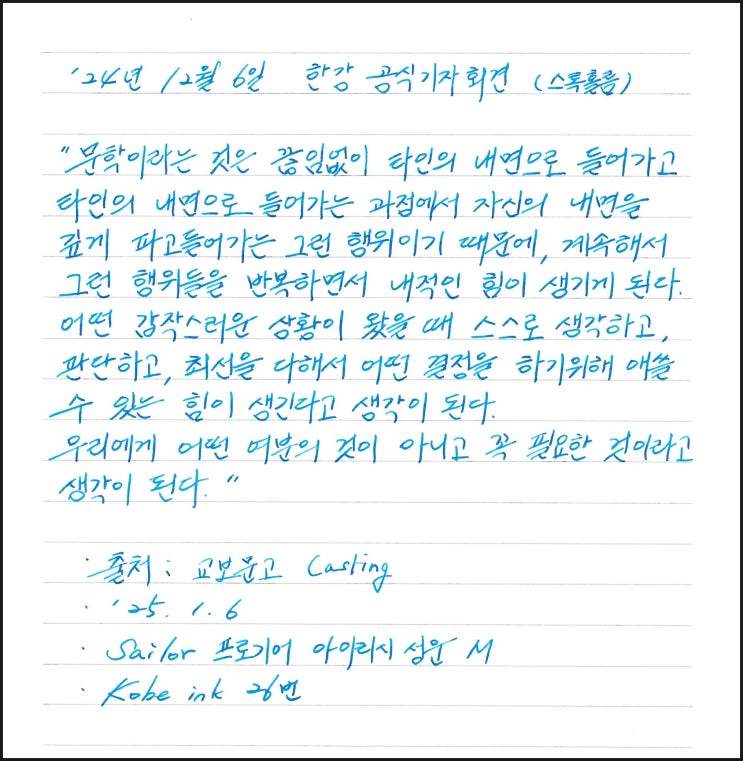 '24년 12월 6일 한강 공식기자회견 (스톡홀름)
"문학이라는 것은 끊임없이 타인의 내면으로 들어가고
타인의 내면으로 들어가는 과정에서 자신의 내면을
깊게 파고들어가는 그런 행위이기 때문에, 계속해서
그런 행위들을 반복하면서 내적인 힘이 생기게 된다.
어떤 갑작스러운 상황이 왔을 때 스스로 생각하고,
판단하고, 최선을 다해서 어떤 결정을 하기위해 애쓸
수 있는 힘이 생긴다고 생각이 된다.
우리에게 어떤 여분의 것이 아니고 꼭 필요한 것이라고
생각이 된다."
· 출처 : 교보문고 Casting
· '25. 1. 6
· Sailor 프로기어 아이리시 M
· Kobe ink 26번